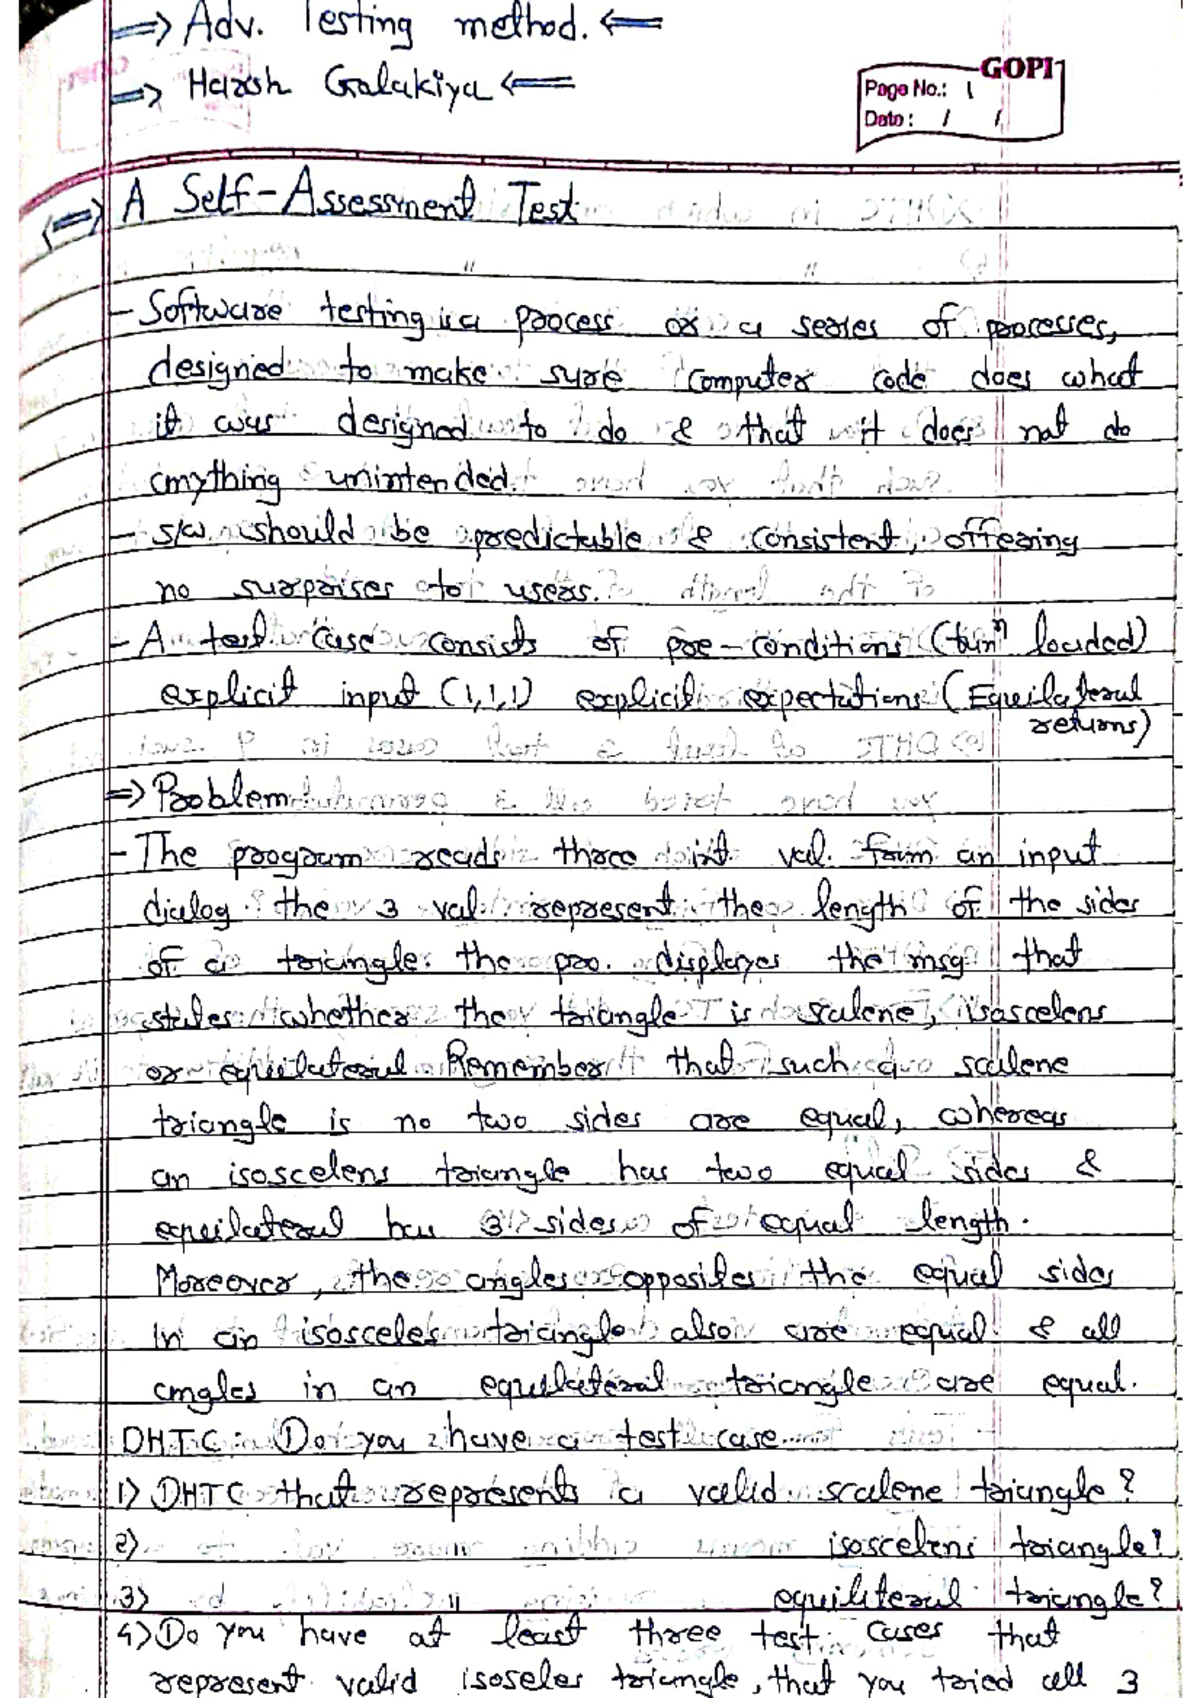 => Adv. Testing method. <=
=> Harsh Galakiya <=
GOPI
Page No.: 1
Date: / /
<=> A Self-Assessment Test
- Software testing is a process or a series of processes,
designed to make sure computer code does what
it was designed to do & that it does not do
anything unintended.
- S/W should be predictable & consistent, offering
no surprises to users.
- A test case consists of pre-conditions (turn loaded)
explicit input (1,1,1) explicit expectations (Equilateral
returns)
=> Problem
- The program reads three int val. from an input
dialog. the 3 val represent the length of the sides
of a triangle. the pro. displayes the msg that
states whether the triangle is scalene, isoscelens
or equilateral Remember that such a scalene
triangle is no two sides are equal, whereas
an isoscelens triangle has two equal sides &
equilateral has 3 sides of equal length.
Moreover, the angles opposites the equal sides
In an isosceles triangle also are equal & all
angles in an equilateral triangle are equal.
DHTC: Do you have a test case
1) DHTC that represents a valid scalene triangle?
2) isoscelens triangle?
3) " equiliteral triangle?
4) Do you have at least three test cases that
represent valid isoseles triangle, that you tried all 3